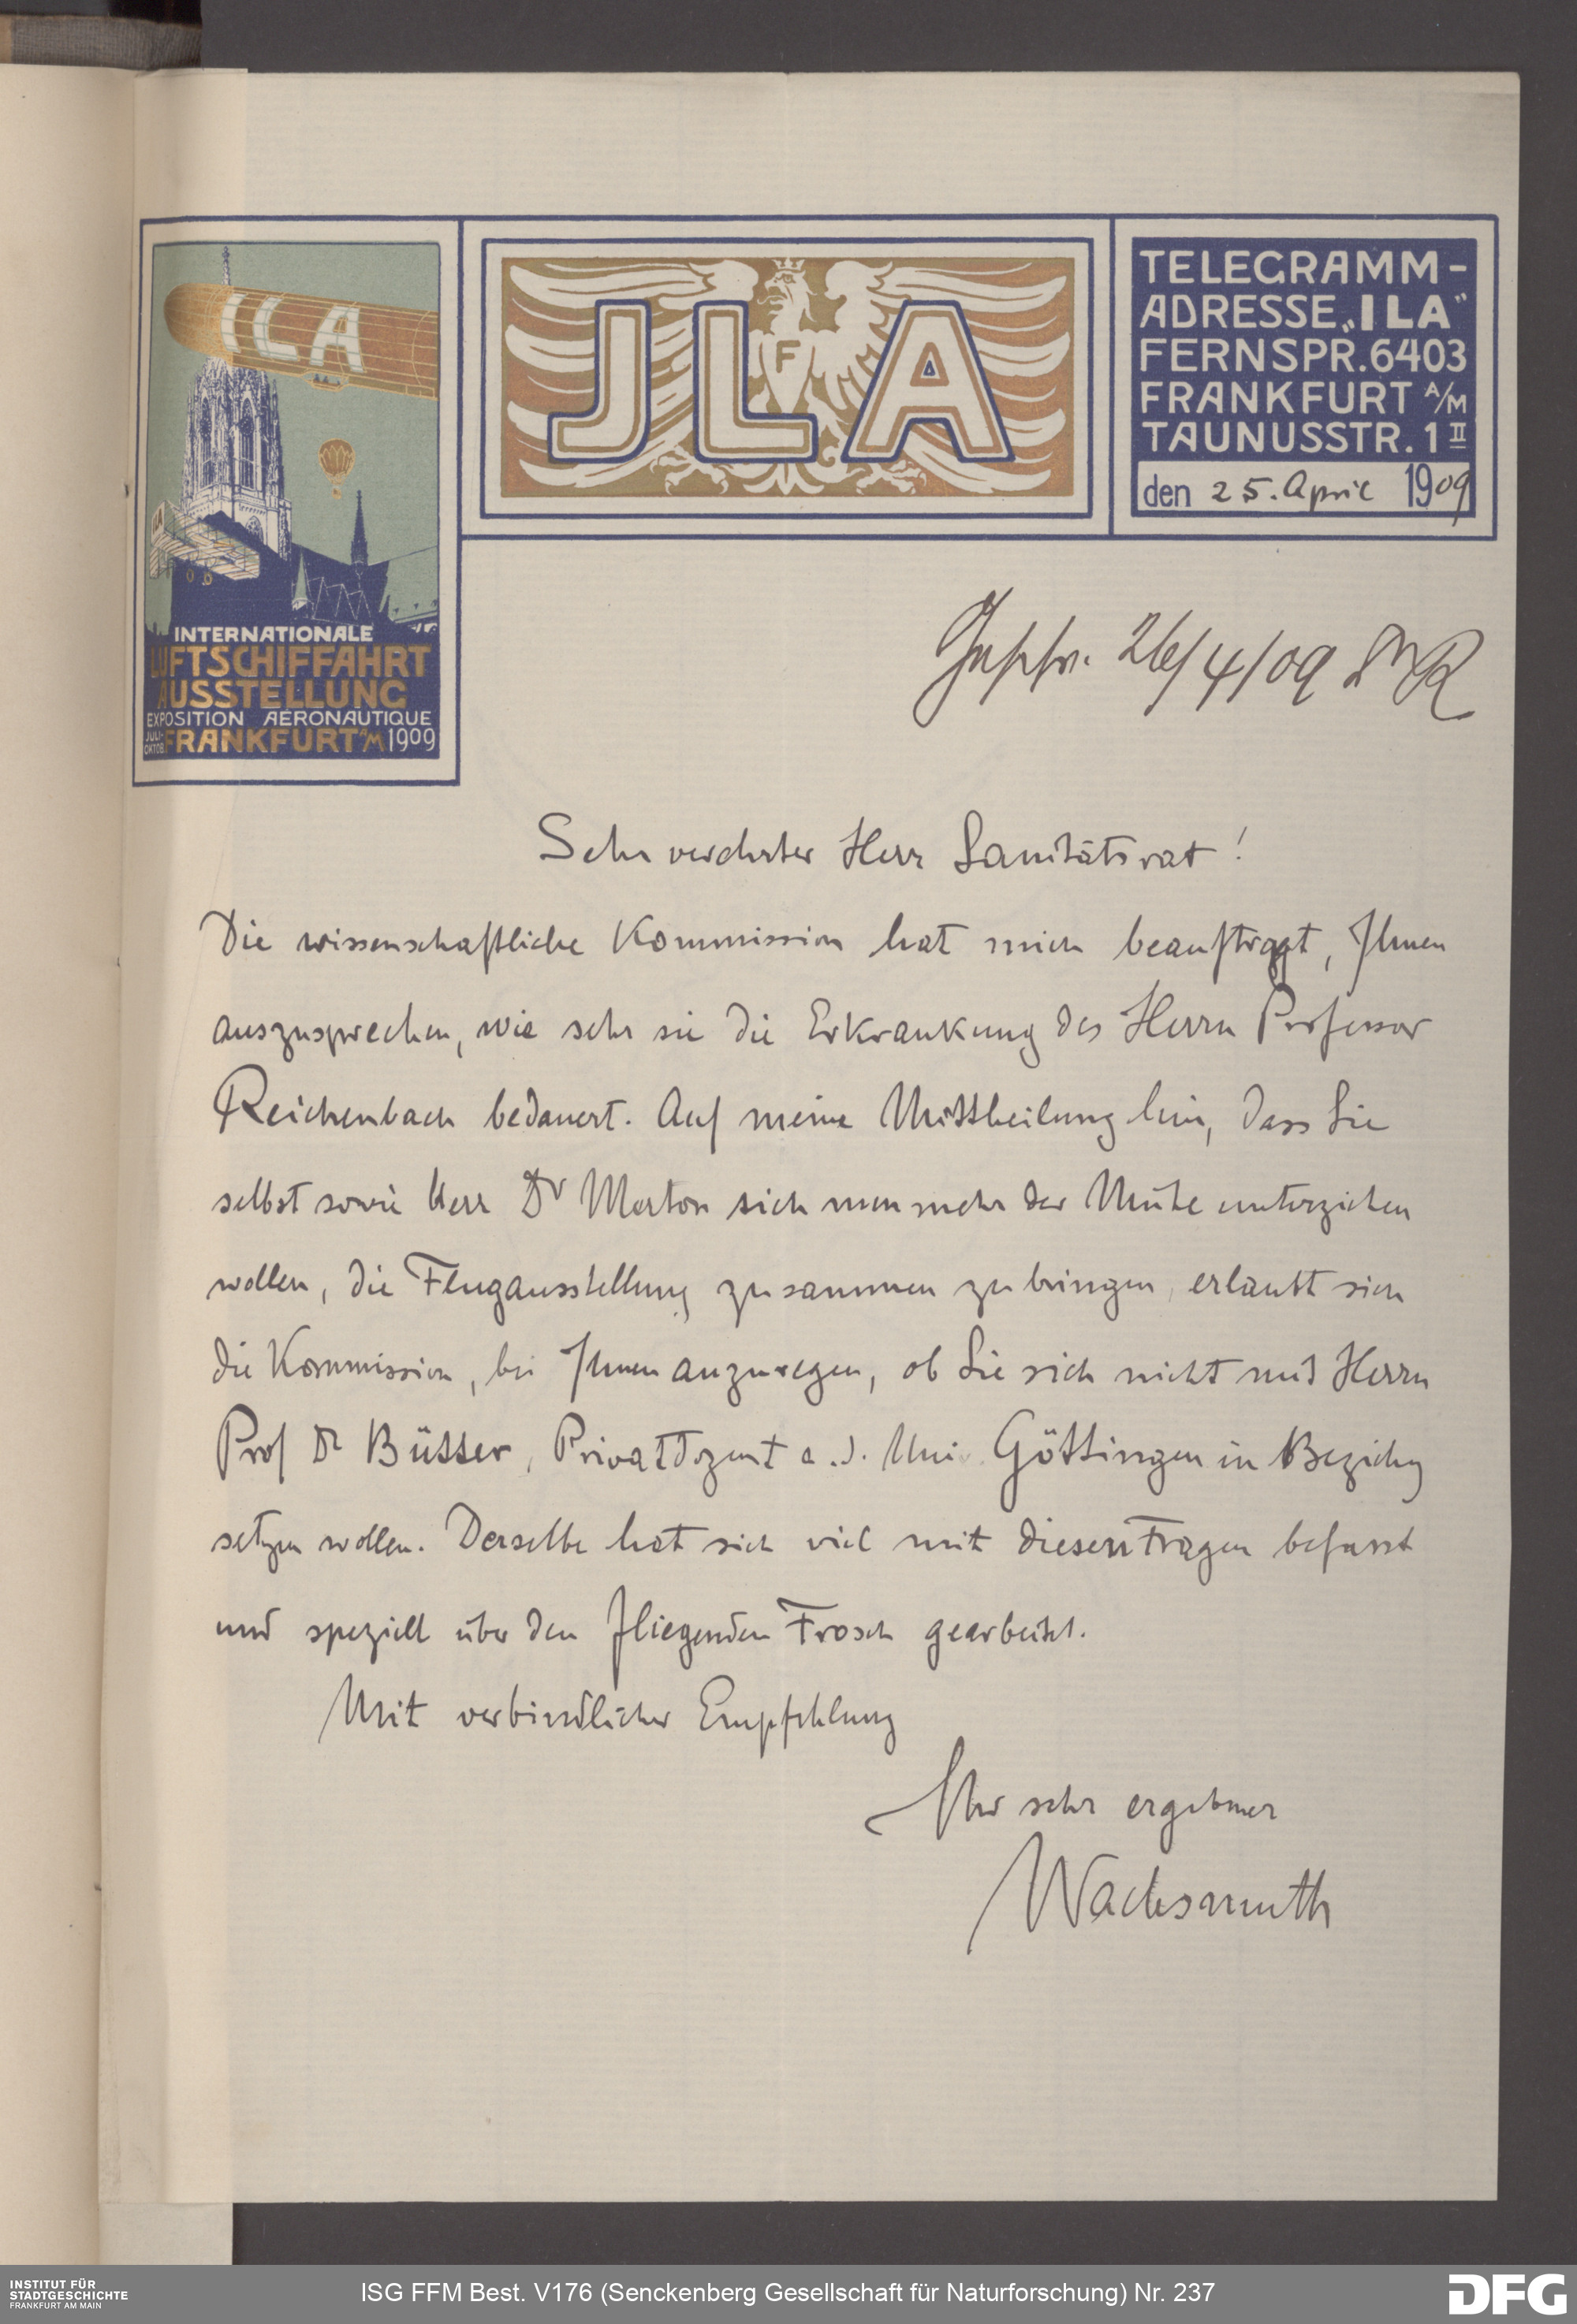 ILA
INTERNATIONALE
LUFTSCHIFFAHRT
AUSSTELLUNG
EXPOSITION AÉRONAUTIQUE
JULI-OKTOB. FRANKFURT A/M 1909
JLA
F
TELEGRAMM-
ADRESSE „ILA"
FERNSPR. 6403
FRANKFURT A/M
TAUNUSSTR. 1 II
den 25. April 1909
26/4/09
Sehr verehrter Herr Sanitätsrat!
Die wissenschaftliche Kommission hat mich beauftragt, Ihnen
auszusprechen, wie sehr sie die Erkrankung des Herrn Professor
Reichenbach bedauert. Auf meine Mittheilung hin, dass Sie
selbst sowie Herr Dr Merton sich nunmehr der Mühe unterziehen
wollen, die Flugausstellung zusammen zu bringen, erlaubt sich
die Kommission, bei Ihnen anzuregen, ob Sie sich nicht mit Herrn
Prof Dr Bütter, Privatdozent a. d. Univ. Göttingen in Beziehg
setzen wollen. Derselbe hat sich viel mit diesen Fragen befasst
und speziell über den fliegenden Frosch gearbeitet.
Mit verbindlicher Empfehlung
Ihr sehr ergebener
Wachsmuth
INSTITUT FÜR
STADTGESCHICHTE
FRANKFURT AM MAIN
ISG FFM Best. V176 (Senckenberg Gesellschaft für Naturforschung) Nr. 237
DFG